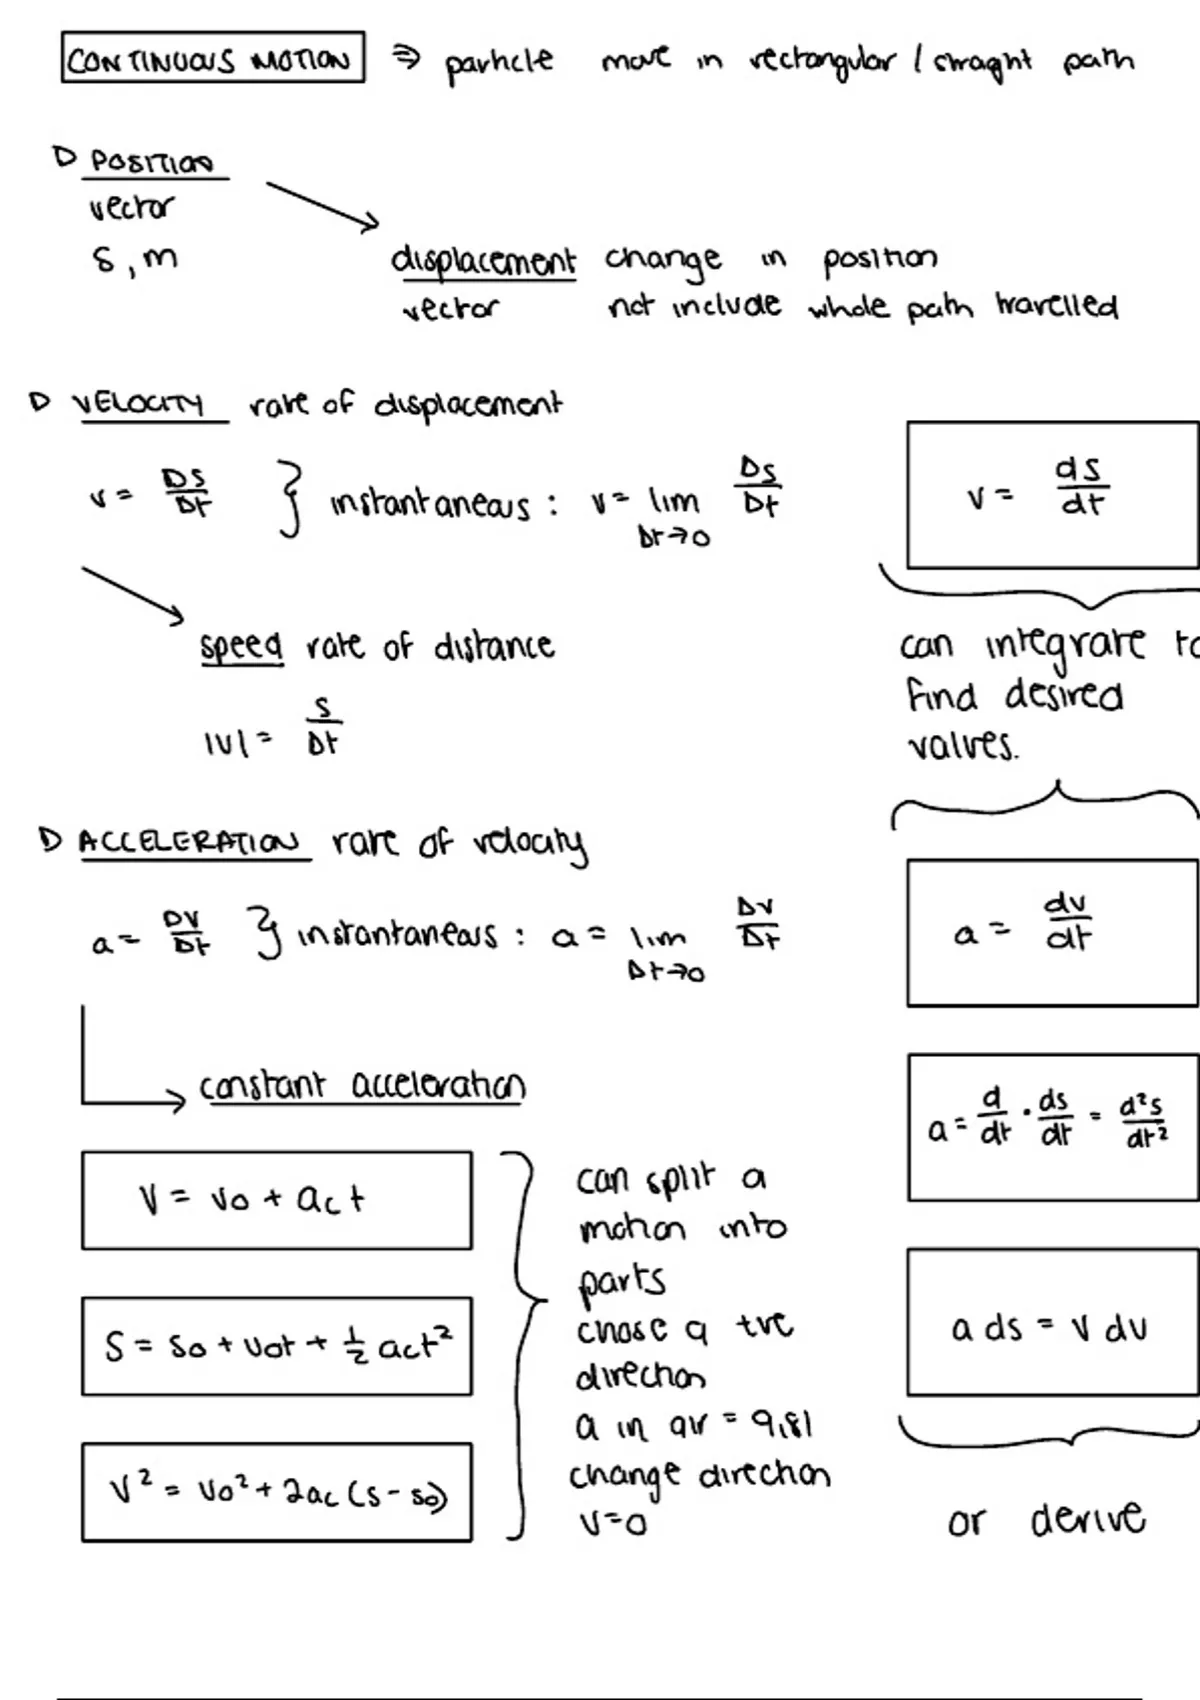 CONTINUOUS MOTION ⇒ particle move in rectangular / straight path
▷ POSITION
vector
s, m
displacement change in position
vector not include whole path travelled
▷ VELOCITY rate of displacement
v = Δs/Δt } instantaneous : v = lim Δt→0 Δs/Δt
v = ds/dt
speed rate of distance
|v| = s/Δt
can integrate to
find desired
values.
▷ ACCELERATION rate of velocity
a = Δv/Δt } instantaneous : a = lim Δt→0 Δv/Δt
a = dv/dt
a = d/dt · ds/dt = d²s/dt²
a ds = v dv
or derive
constant acceleration
v = v0 + act
s = s0 + v0t + 1/2 act²
v² = v0² + 2ac (s - s0)
can split a
motion into
parts
chose a +ve
direction
a in air = 9,81
change direction
v=0